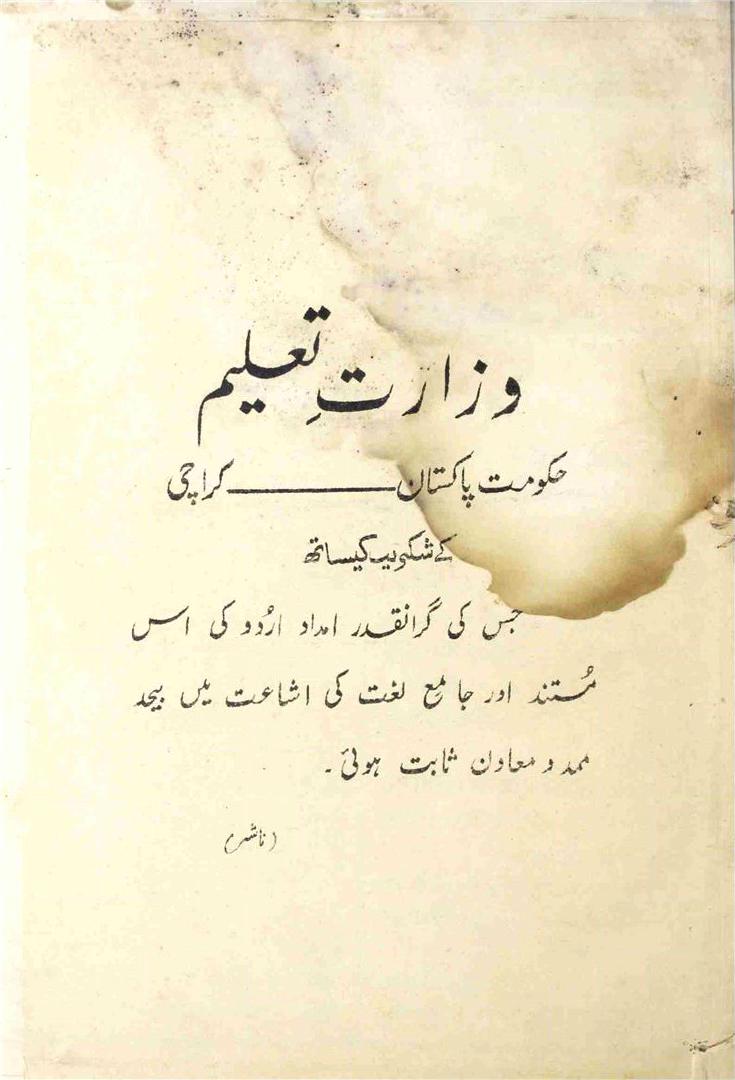 وزارتِ تعلیم
حکومت پاکستان ــــــــــ کراچی
کے شکریہ کیساتھ
جس کی گرانقدر امداد اردو کی اس
مُستند اور جامع لغت کی اشاعت میں بیحد
ممد و معاون ثابت ہوئی۔
(ناشر)